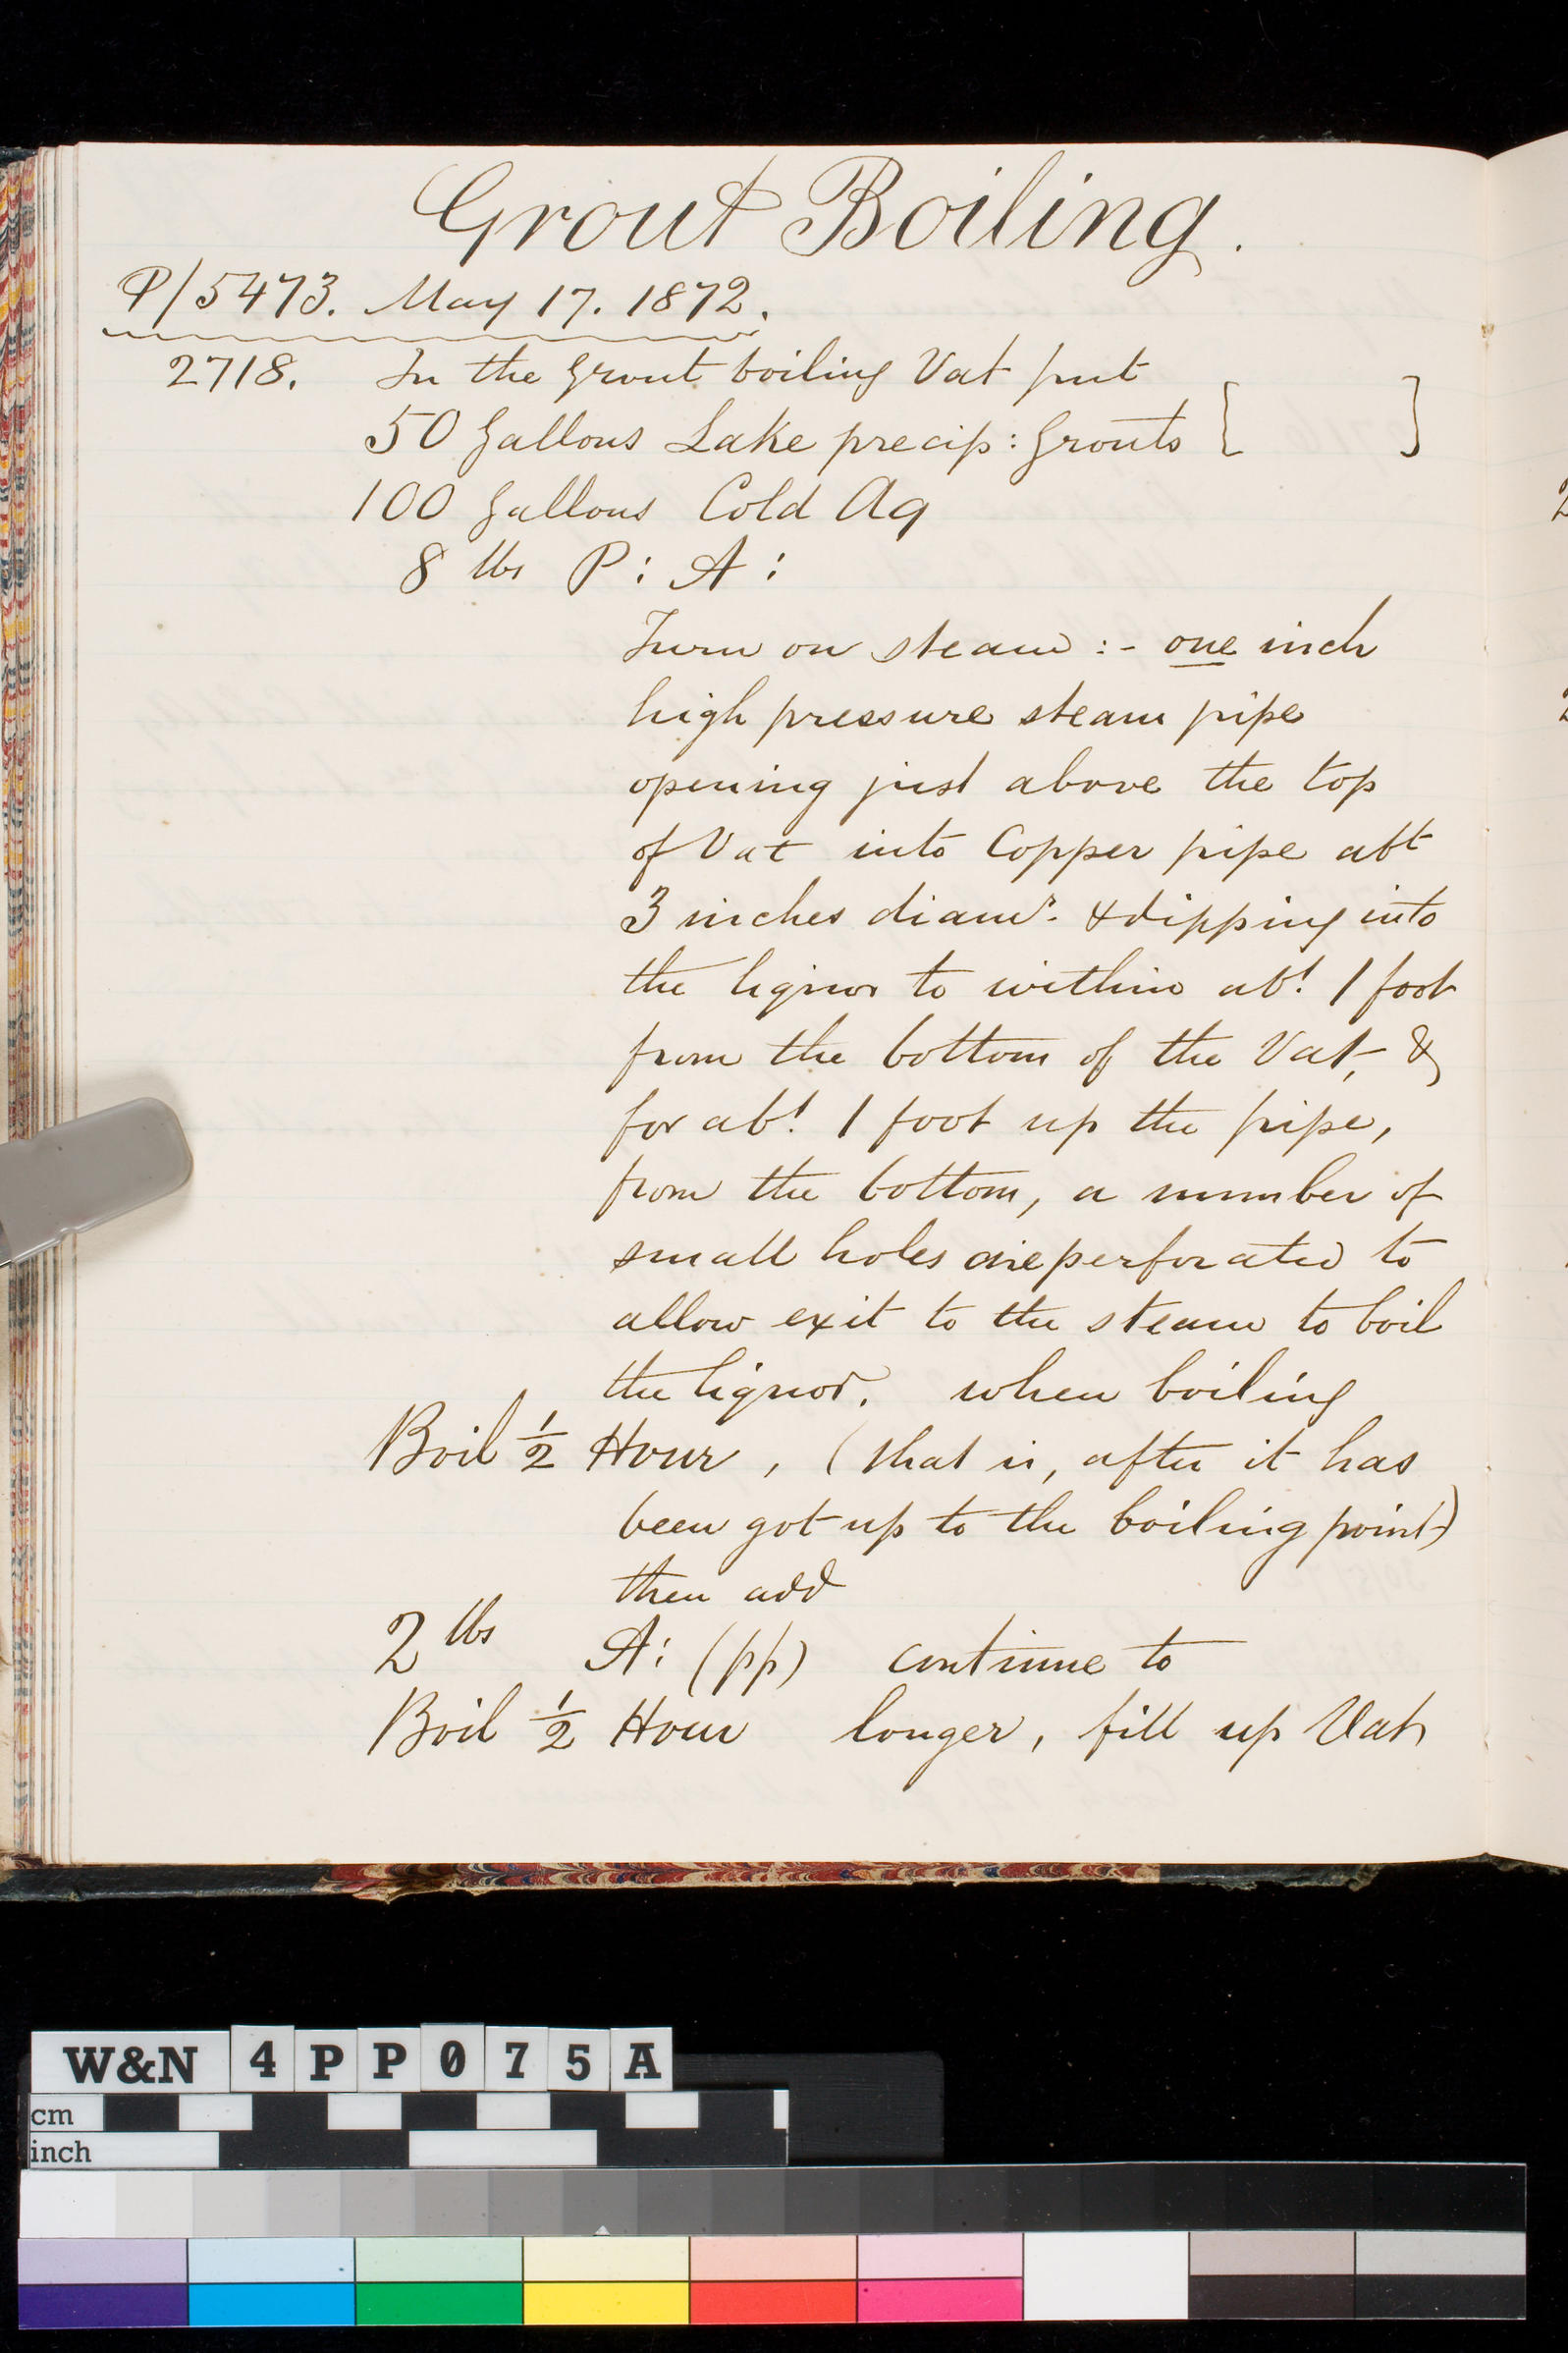 Grout Boiling.
P/5473. May 17. 1872.
2718. In the Grout boiling Vat put
50 Gallons Lake precip: Grouts [ ]
100 Gallons Cold Aq
8 lbs P: A:
Turn on steam :- one inch
high pressure steam pipe
opening just above the top
of Vat into Copper pipe abt
3 inches diamr. & dipping into
the liquor to within abt. 1 foot
from the bottom of the Vat, &
for abt. 1 foot up the pipe,
from the bottom, a number of
small holes are perforated to
allow exit to the steam to boil
the liquor. when boiling
Boil ½ Hour, (that is, after it has
been got up to the boiling point)
then add
2 lbs A: (pp) continue to
Boil ½ Hour longer, fill up Vat
W&N 4PP075A
cm
inch